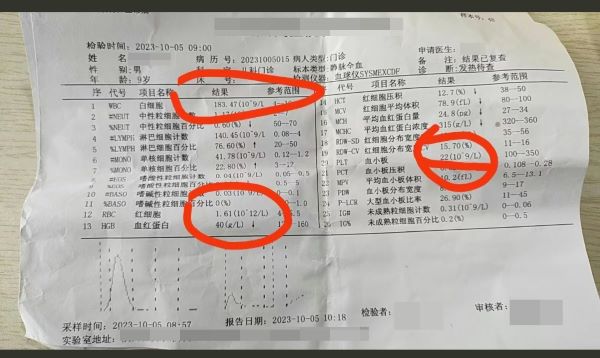 检验时间: 2023-10-05 09:00
姓名:
性别:男
年龄: 9岁
病历号: 20231005015
儿科门诊
床号
病人类型:门诊
标本类型:静脉全血
检测仪器: 血球仪SYSMEXCDF
申请医生:
备注: 结果已复查
诊断:发热待查
序 代号 项目名称 结果 参考范围
1 WBC 白细胞 183.47(10^9/L)
2 #NEUT 中性粒细胞数
3 %NEUT 中性粒细胞百分比 0.60(%) ↓ 50--70
4 #LYMPH 淋巴细胞数 140.45(10^9/L) 0.08--4
5 %LYMPH 淋巴细胞百分比 76.60(%) ↑ 20--50
6 #MONO 单核细胞数 41.78(10^9/L) 0.12--1.2
7 %MONO 单核细胞百分比 22.80(%) ↑
嗜酸性粒细胞
10 #BASO 嗜碱性粒细胞数 0.03(10^9/L)
11 %BASO 嗜碱性粒细胞百分比 0(%)
12 RBC 红细胞 1.61(10^12/L)
13 HGB 血红蛋白 40(g/L) ↓
序 代号 项目名称 结果 参考范围
14 HCT 红细胞压积 12.7(%) ↓ 38--50
15 MCV 红细胞平均体积 78.9(fL) ↓ 80--100
16 MCH 平均血红蛋白量 24.8(pg) ↓ 27--34
17 MCHC 平均血红蛋白浓度 315(g/L) ↓ 320--360
18 RDW-SD 红细胞分布宽度 35--56
19 RDW-CV 红细胞分布宽度 15.70(%) 11--16
20 PLT 血小板 22(10^9/L) 100--350
21 PCT 血小板压积 0.108-0.28
22 MPV 平均血小板体积 10.2(fL) 6.5--13.1
23 PDW 血小板分布宽度 9--17
24 P-LCR 大型血小板比率 26.90(%) 11--45
25 IG# 未成熟粒细胞计数 0.31(10^9/L) 0--0.06
26 IG% 未成熟粒细胞百分比 0.2(%) 0--0.5
采样时间: 2023-10-05 08:57
报告日期: 2023-10-05 10:18
检验者:
审核者:
实验室地址: